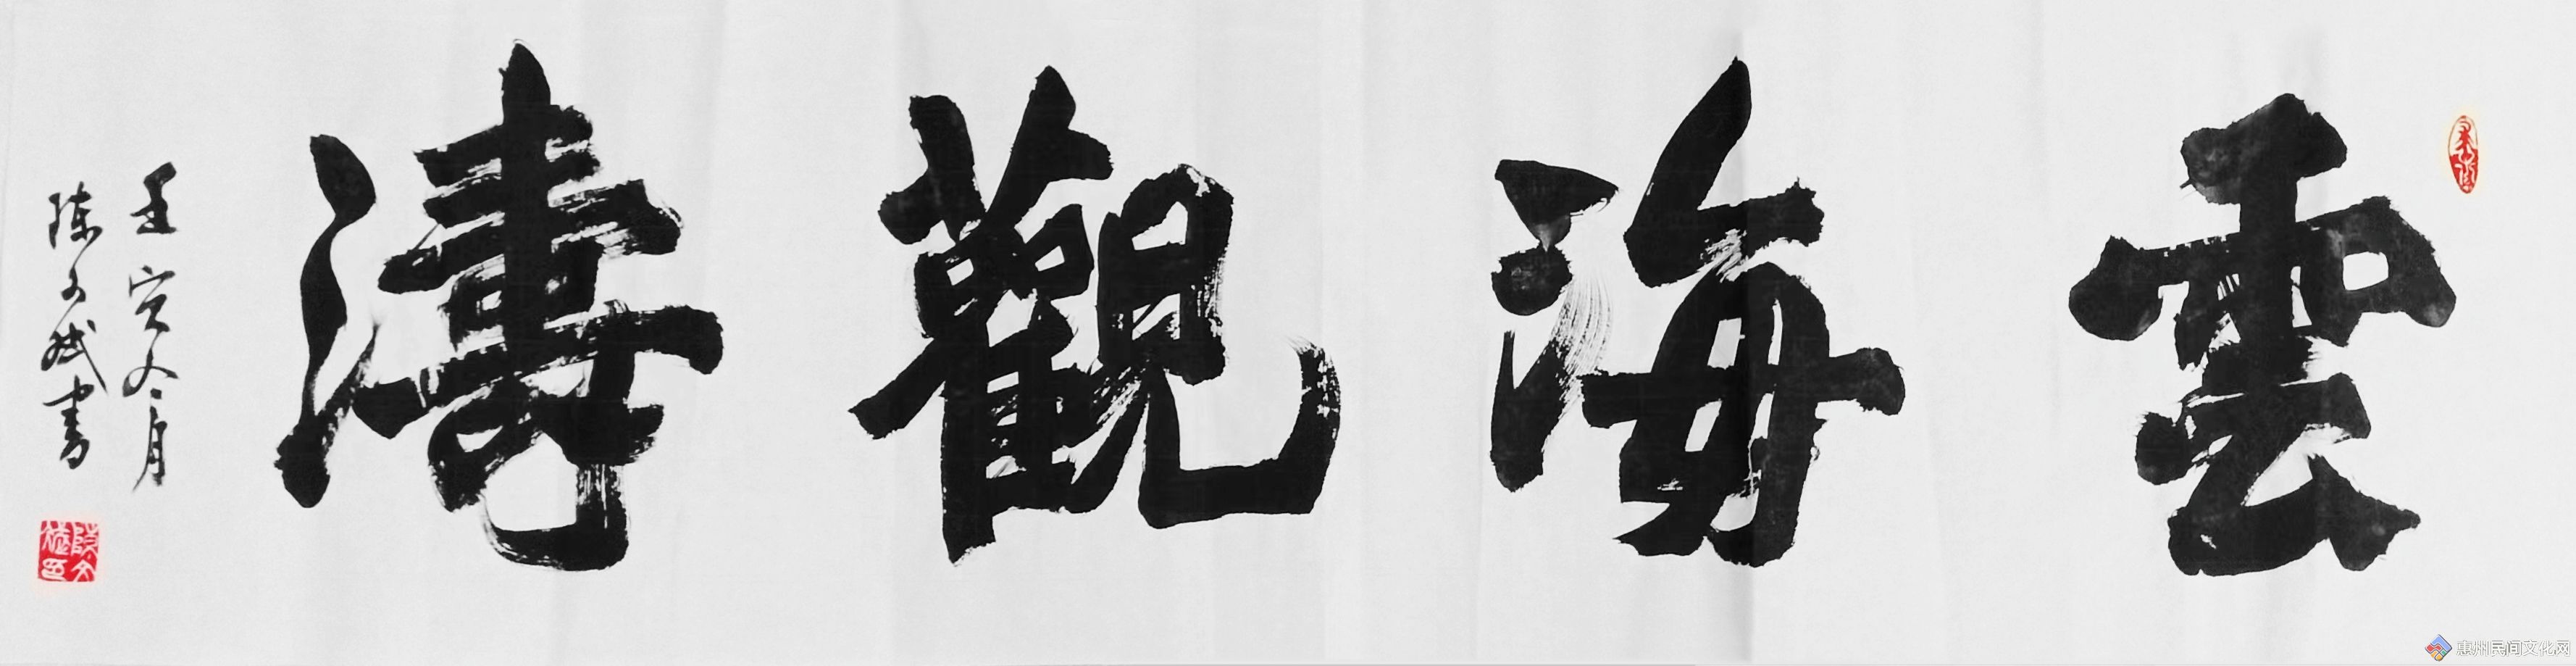 雲海觀濤
壬寅冬月
陈文斌書
惠州民间文化网